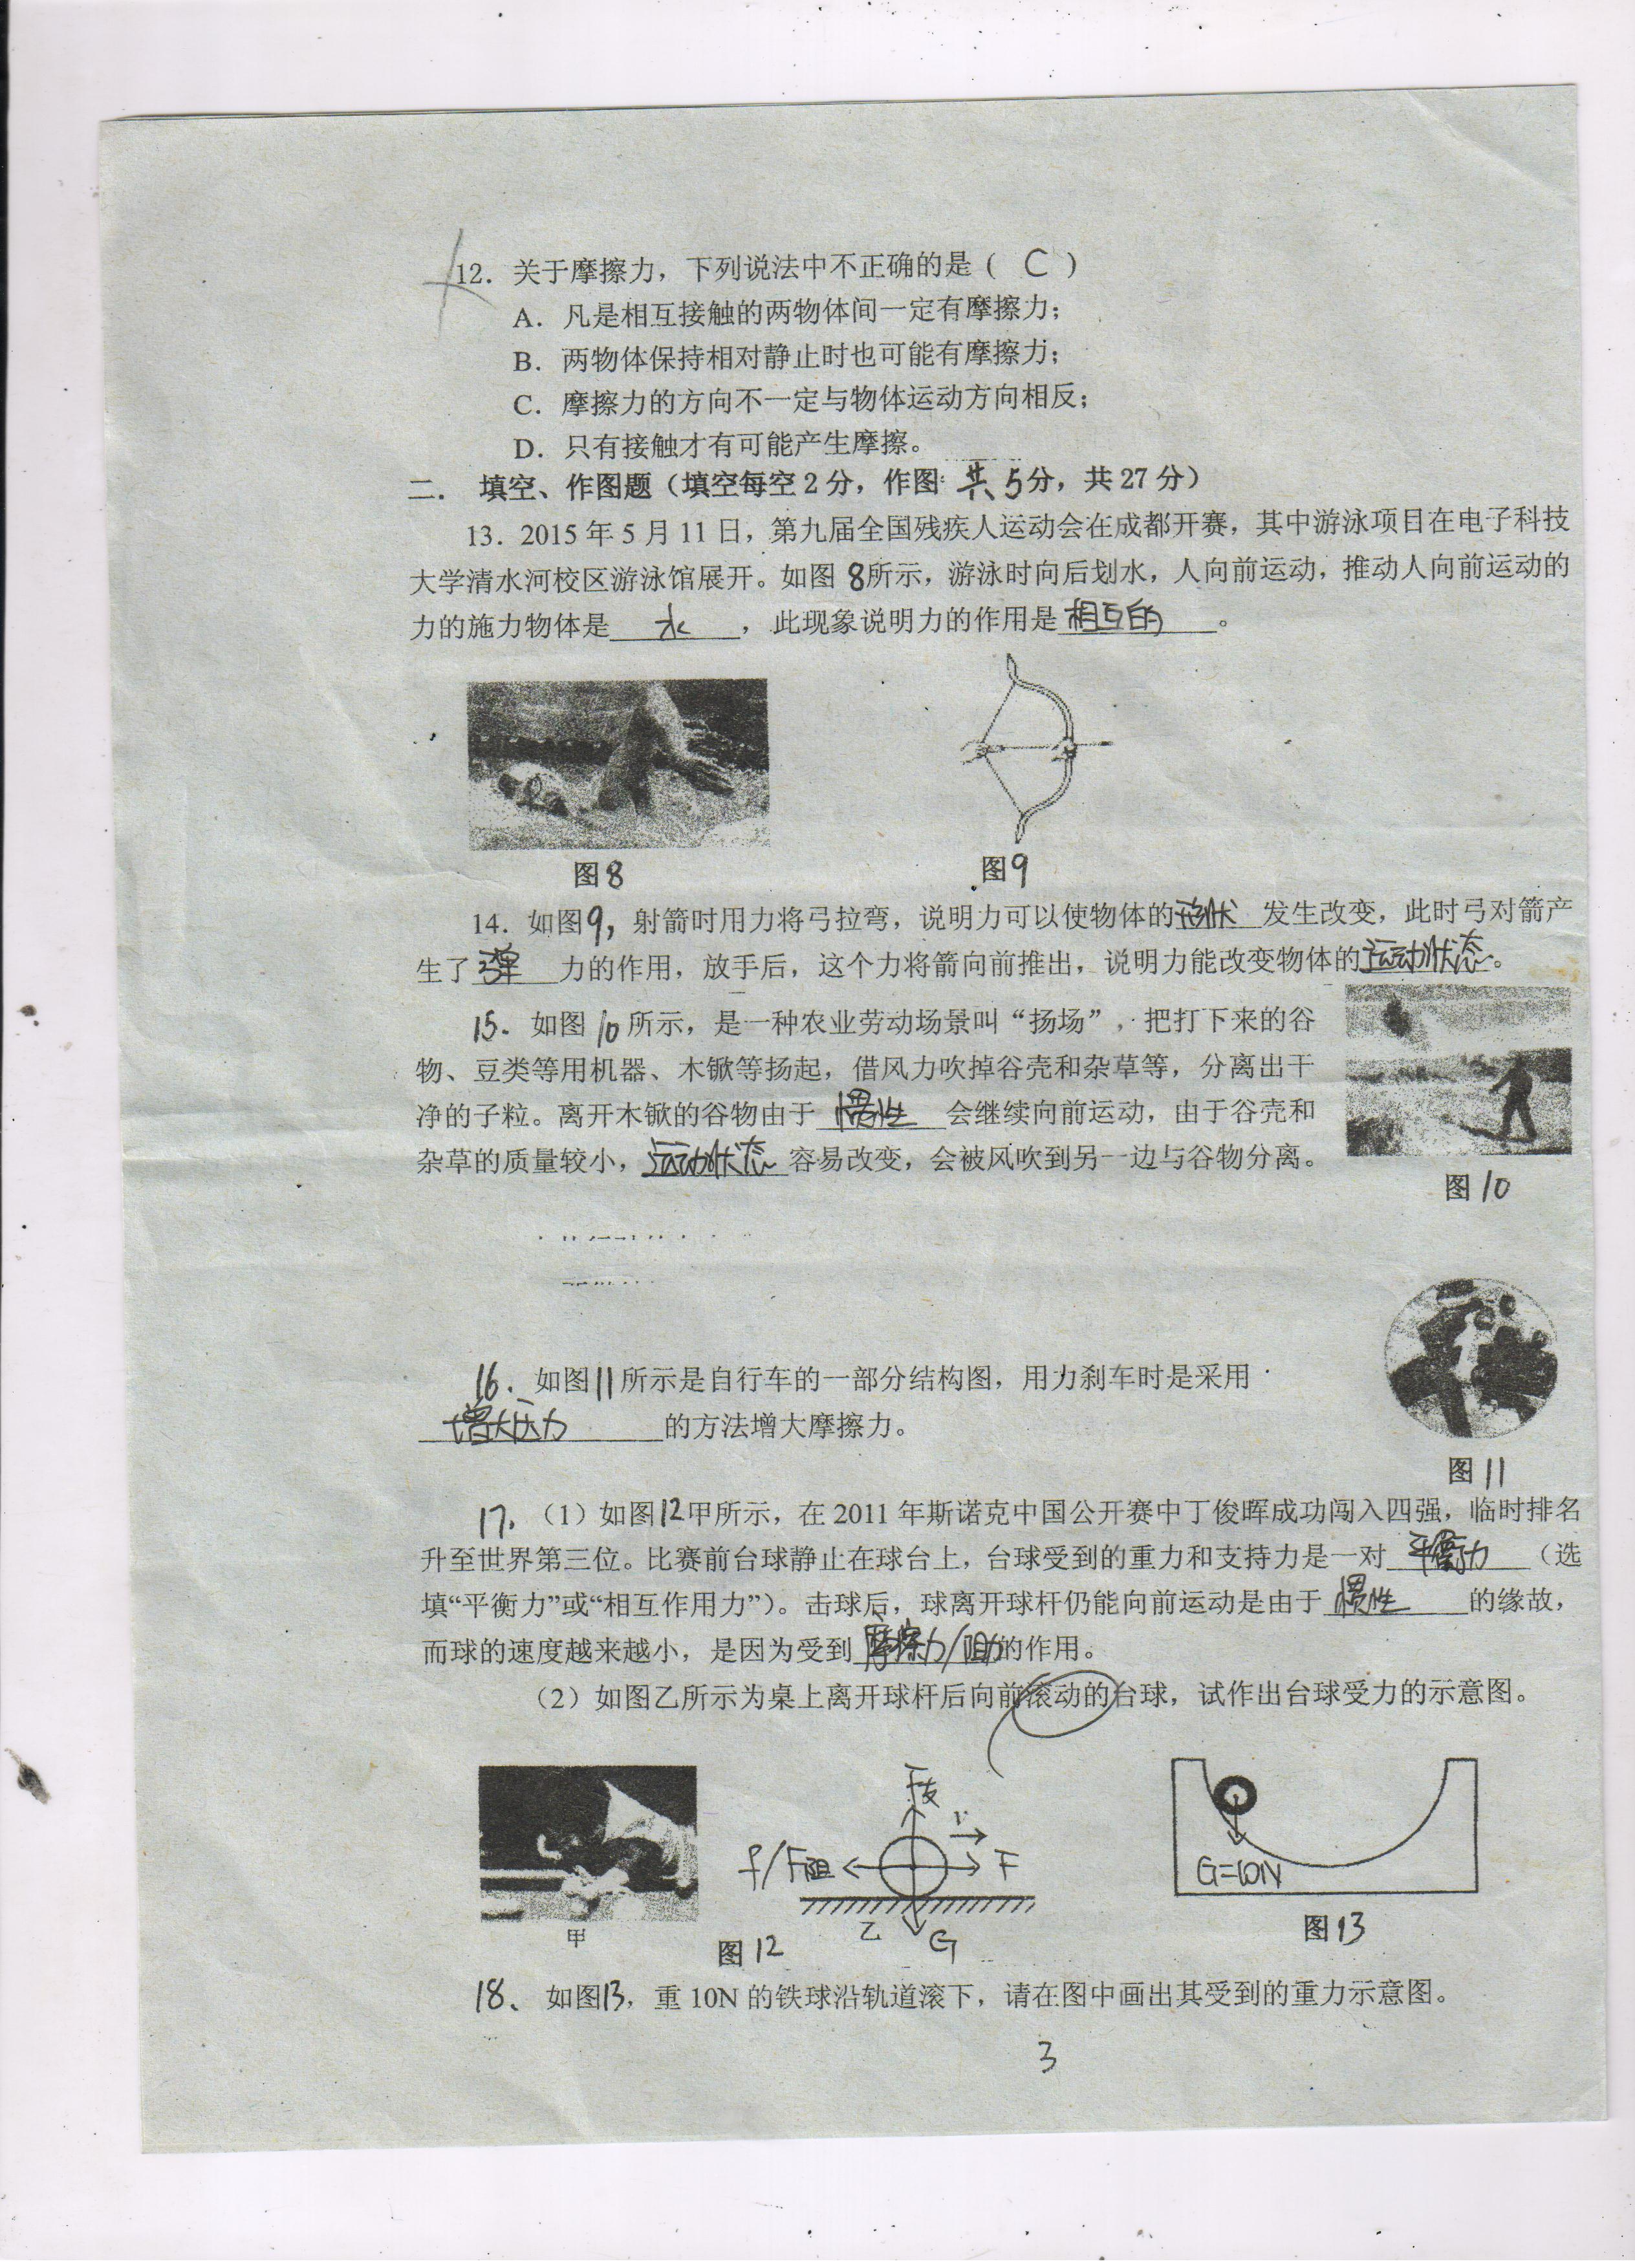 12．关于摩擦力，下列说法中不正确的是（ C ）
A．凡是相互接触的两物体间一定有摩擦力；
B．两物体保持相对静止时也可能有摩擦力；
C．摩擦力的方向不一定与物体运动方向相反；
D．只有接触才有可能产生摩擦。
二． 填空、作图题（填空每空2分，作图共5分，共27分）
13．2015年5月11日，第九届全国残疾人运动会在成都开赛，其中游泳项目在电子科技
大学清水河校区游泳馆展开。如图8所示，游泳时向后划水，人向前运动，推动人向前运动的
力的施力物体是 水 ，此现象说明力的作用是 相互的 。
图8
图9
14．如图9，射箭时用力将弓拉弯，说明力可以使物体的 发生改变，此时弓对箭产
生了 弹 力的作用，放手后，这个力将箭向前推出，说明力能改变物体的运动状态。
15. 如图10所示，是一种农业劳动场景叫“扬场”，把打下来的谷
物、豆类等用机器、木锨等扬起，借风力吹掉谷壳和杂草等，分离出干
净的子粒。离开木锨的谷物由于 惯性 会继续向前运动，由于谷壳和
杂草的质量较小，运动状态容易改变，会被风吹到另一边与谷物分离。
图10
16. 如图11所示是自行车的一部分结构图，用力刹车时是采用
增大压力 的方法增大摩擦力。
图11
17.（1）如图12甲所示，在2011年斯诺克中国公开赛中丁俊晖成功闯入四强，临时排名
升至世界第三位。比赛前台球静止在球台上，台球受到的重力和支持力是一对 平衡力 （选
填“平衡力”或“相互作用力”）。击球后，球离开球杆仍能向前运动是由于 惯性 的缘故，
而球的速度越来越小，是因为受到 摩擦力/阻力的作用。
（2）如图乙所示为桌上离开球杆后向前滚动的台球，试作出台球受力的示意图。
F支
v
f/F阻
F
G
甲
乙
图12
G=10N
图13
18、如图13，重10N的铁球沿轨道滚下，请在图中画出其受到的重力示意图。
3